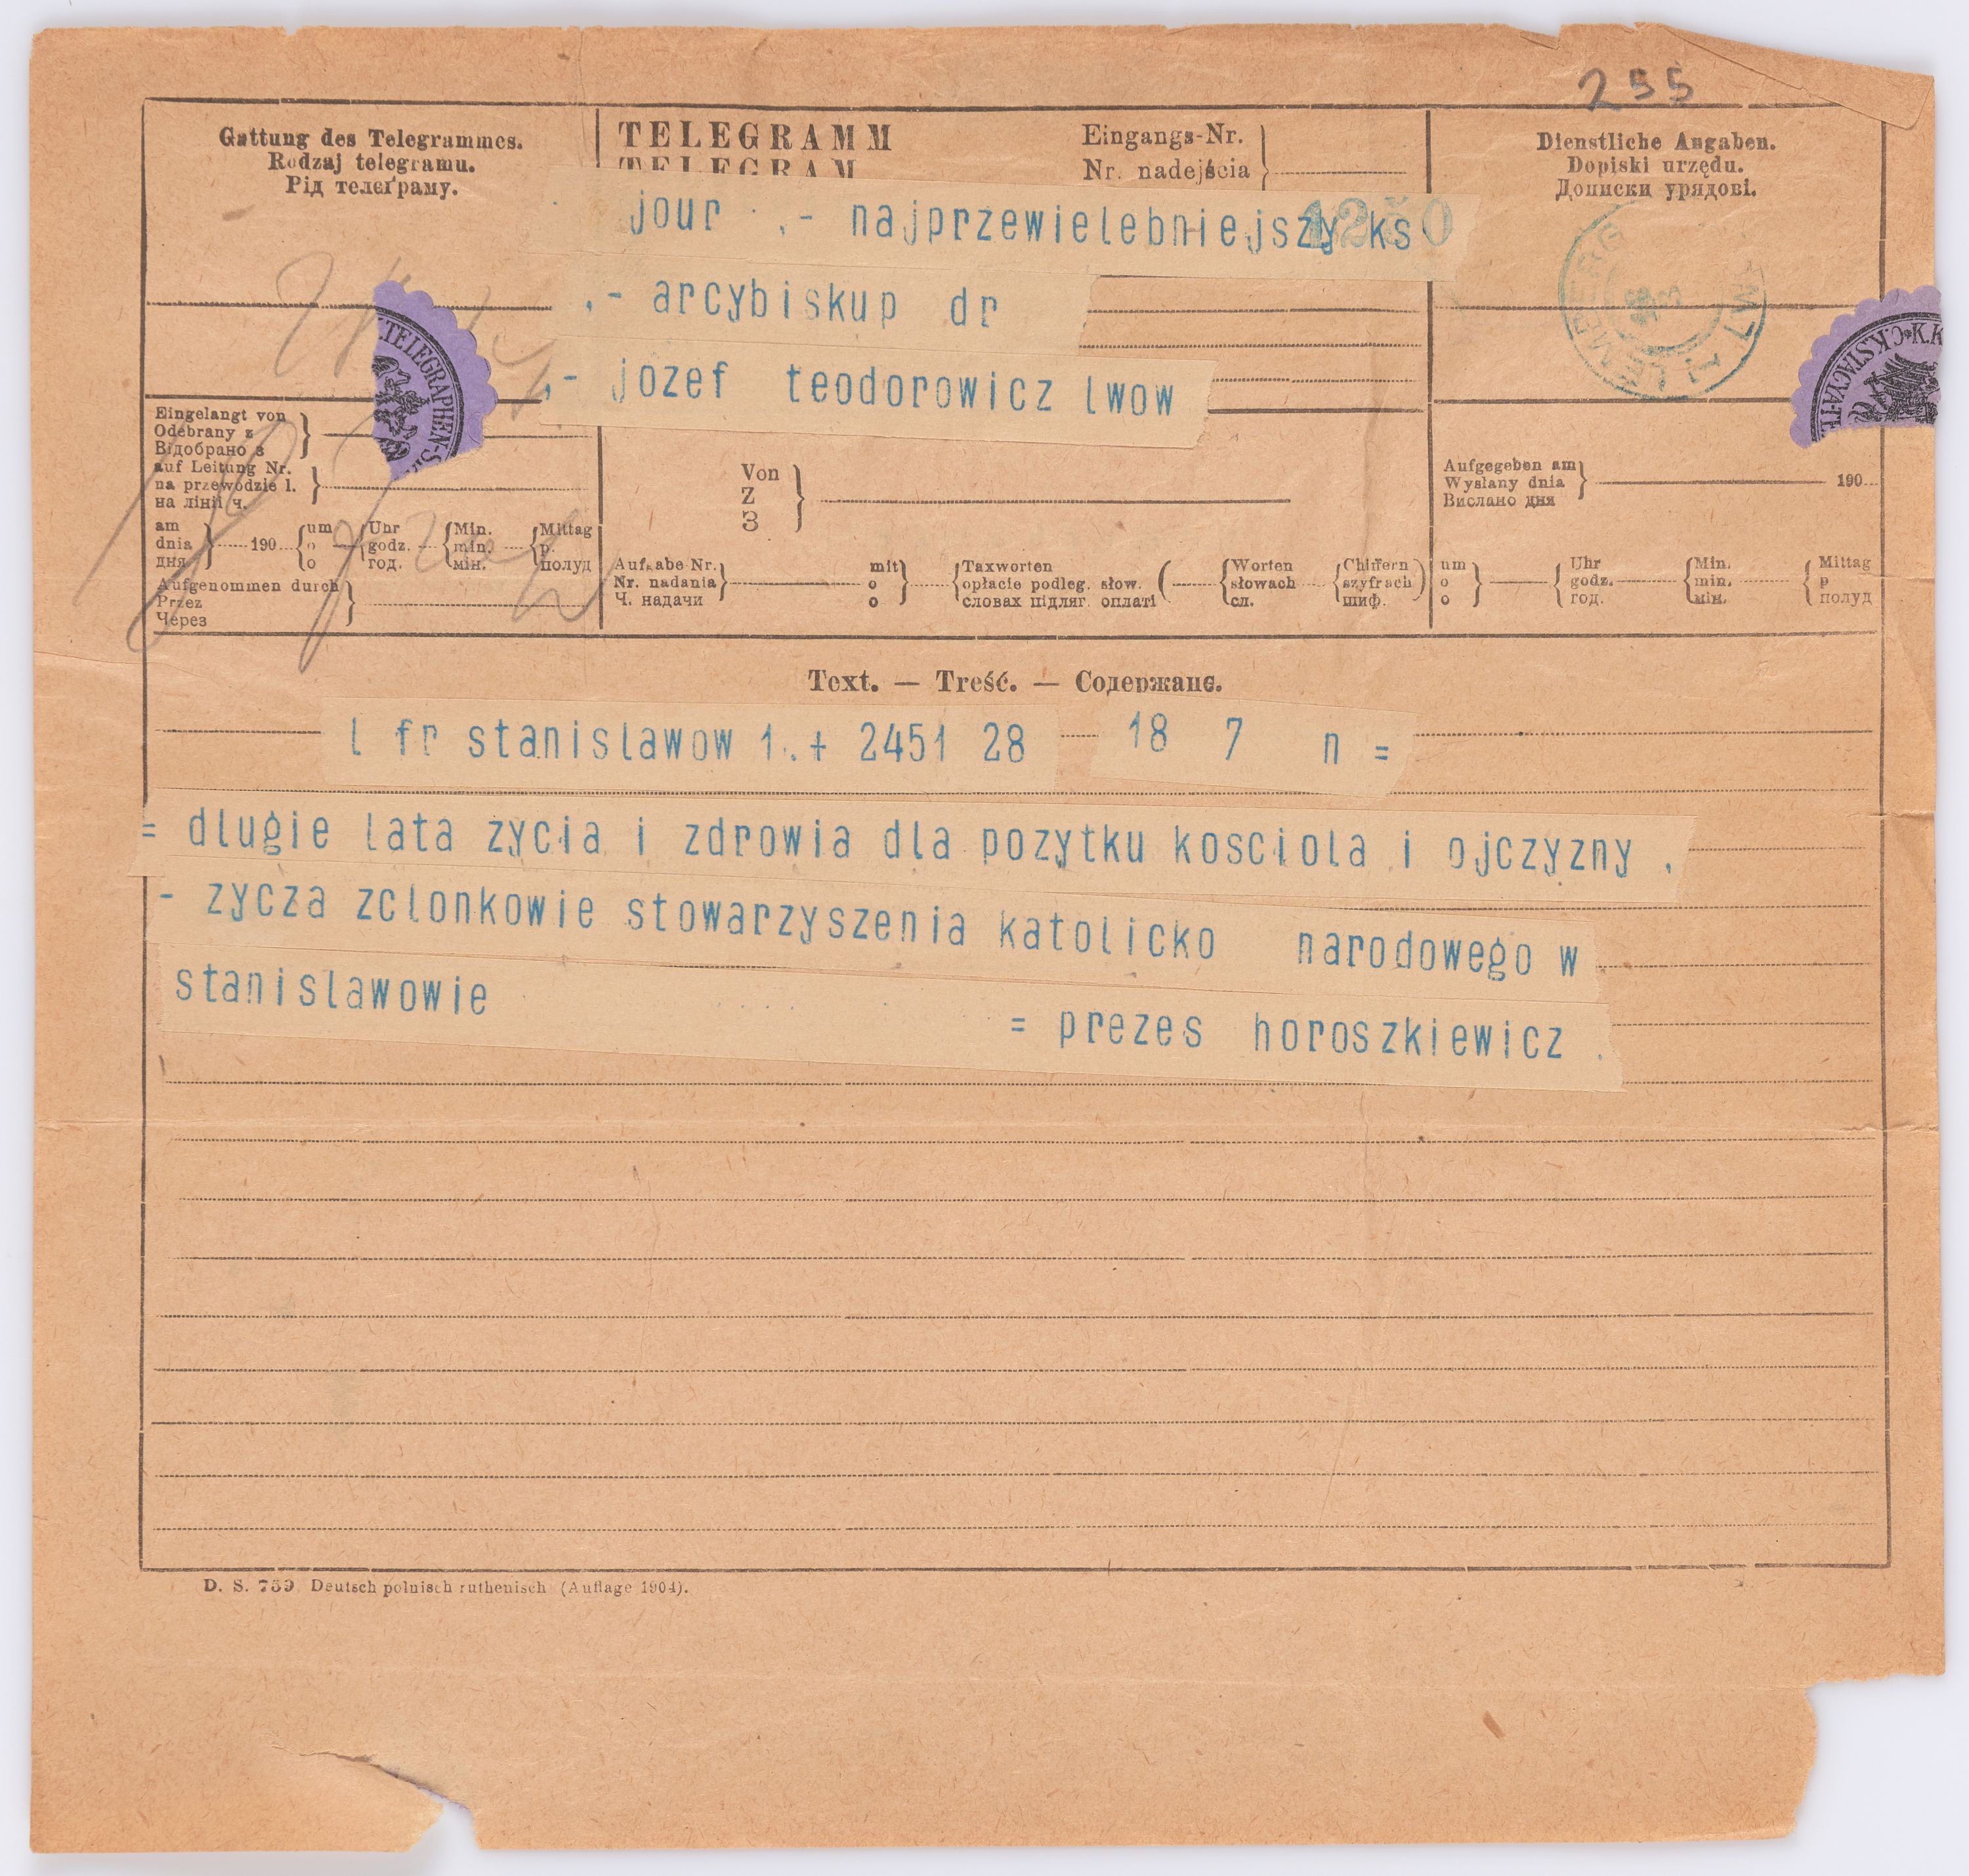 255
Gattung des Telegrammes.
Rodzaj telegramu.
Рід телєґраму.
TELEGRAMM
TELEGRAM
Eingangs-Nr.
Nr. nadejścia
Dienstliche Angaben.
Dopiski urzędu.
Дописки урядові.
1250
jour .- najprzewielebniejszy ks
.- arcybiskup dr
.- jozef teodorowicz lwow
TELEGRAPHEN-S
C.K.STACYA-TE
K.K.
LEMBERG
Eingelangt von
Odebrany z
Відобрано з
auf Leitung Nr.
na przewodzie l.
на лінії ч.
am dnia дня 190 um o o Uhr godz. год. Min. min. мін. Mittag p. полуд
Aufgenommen durch
Przez
Через
Von
Z
З
Aufgabe Nr. Nr. nadania Ч. надачи mit o o Taxworten opłacie podleg. słow. словах підляг. оплаті ( Worten słowach сл. Chiffern szyfrach шиф. )
Aufgegeben am
Wysłany dnia
Вислано дня
190
um o o Uhr godz. год. Min. min. мін. Mittag p полуд
Text. — Treść. — Содержанє.
l fr stanislawow 1.+ 2451 28 18 7 n =
= dlugie lata zycia i zdrowia dla pozytku kosciola i ojczyzny .
- zycza zclonkowie stowarzyszenia katolicko narodowego w
stanislawowie
= prezes horoszkiewicz .
D. S. 739 Deutsch polnisch ruthenisch (Auflage 1904).